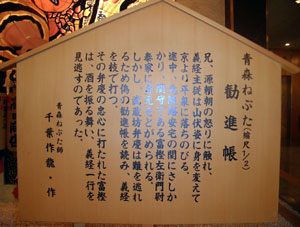 青森ねぶた(縮尺1/2)
勧進帳
兄、源頼朝の怒りに触れ、
義経主従は山伏姿に身を変えて
京より平泉に落ちのびる。
途中、安宅の関にさしか
かり、関守である富樫左衛門尉
泰家に見とがめられる。
しかし、武蔵坊弁慶は難を逃れ
るため偽の勧進帳を読み、義経
を杖で打った。
その弁慶の忠心に打たれた富樫
は、酒を振る舞い、義経一行を
見逃すのであった。
青森ねぶた師
千葉作龍・作